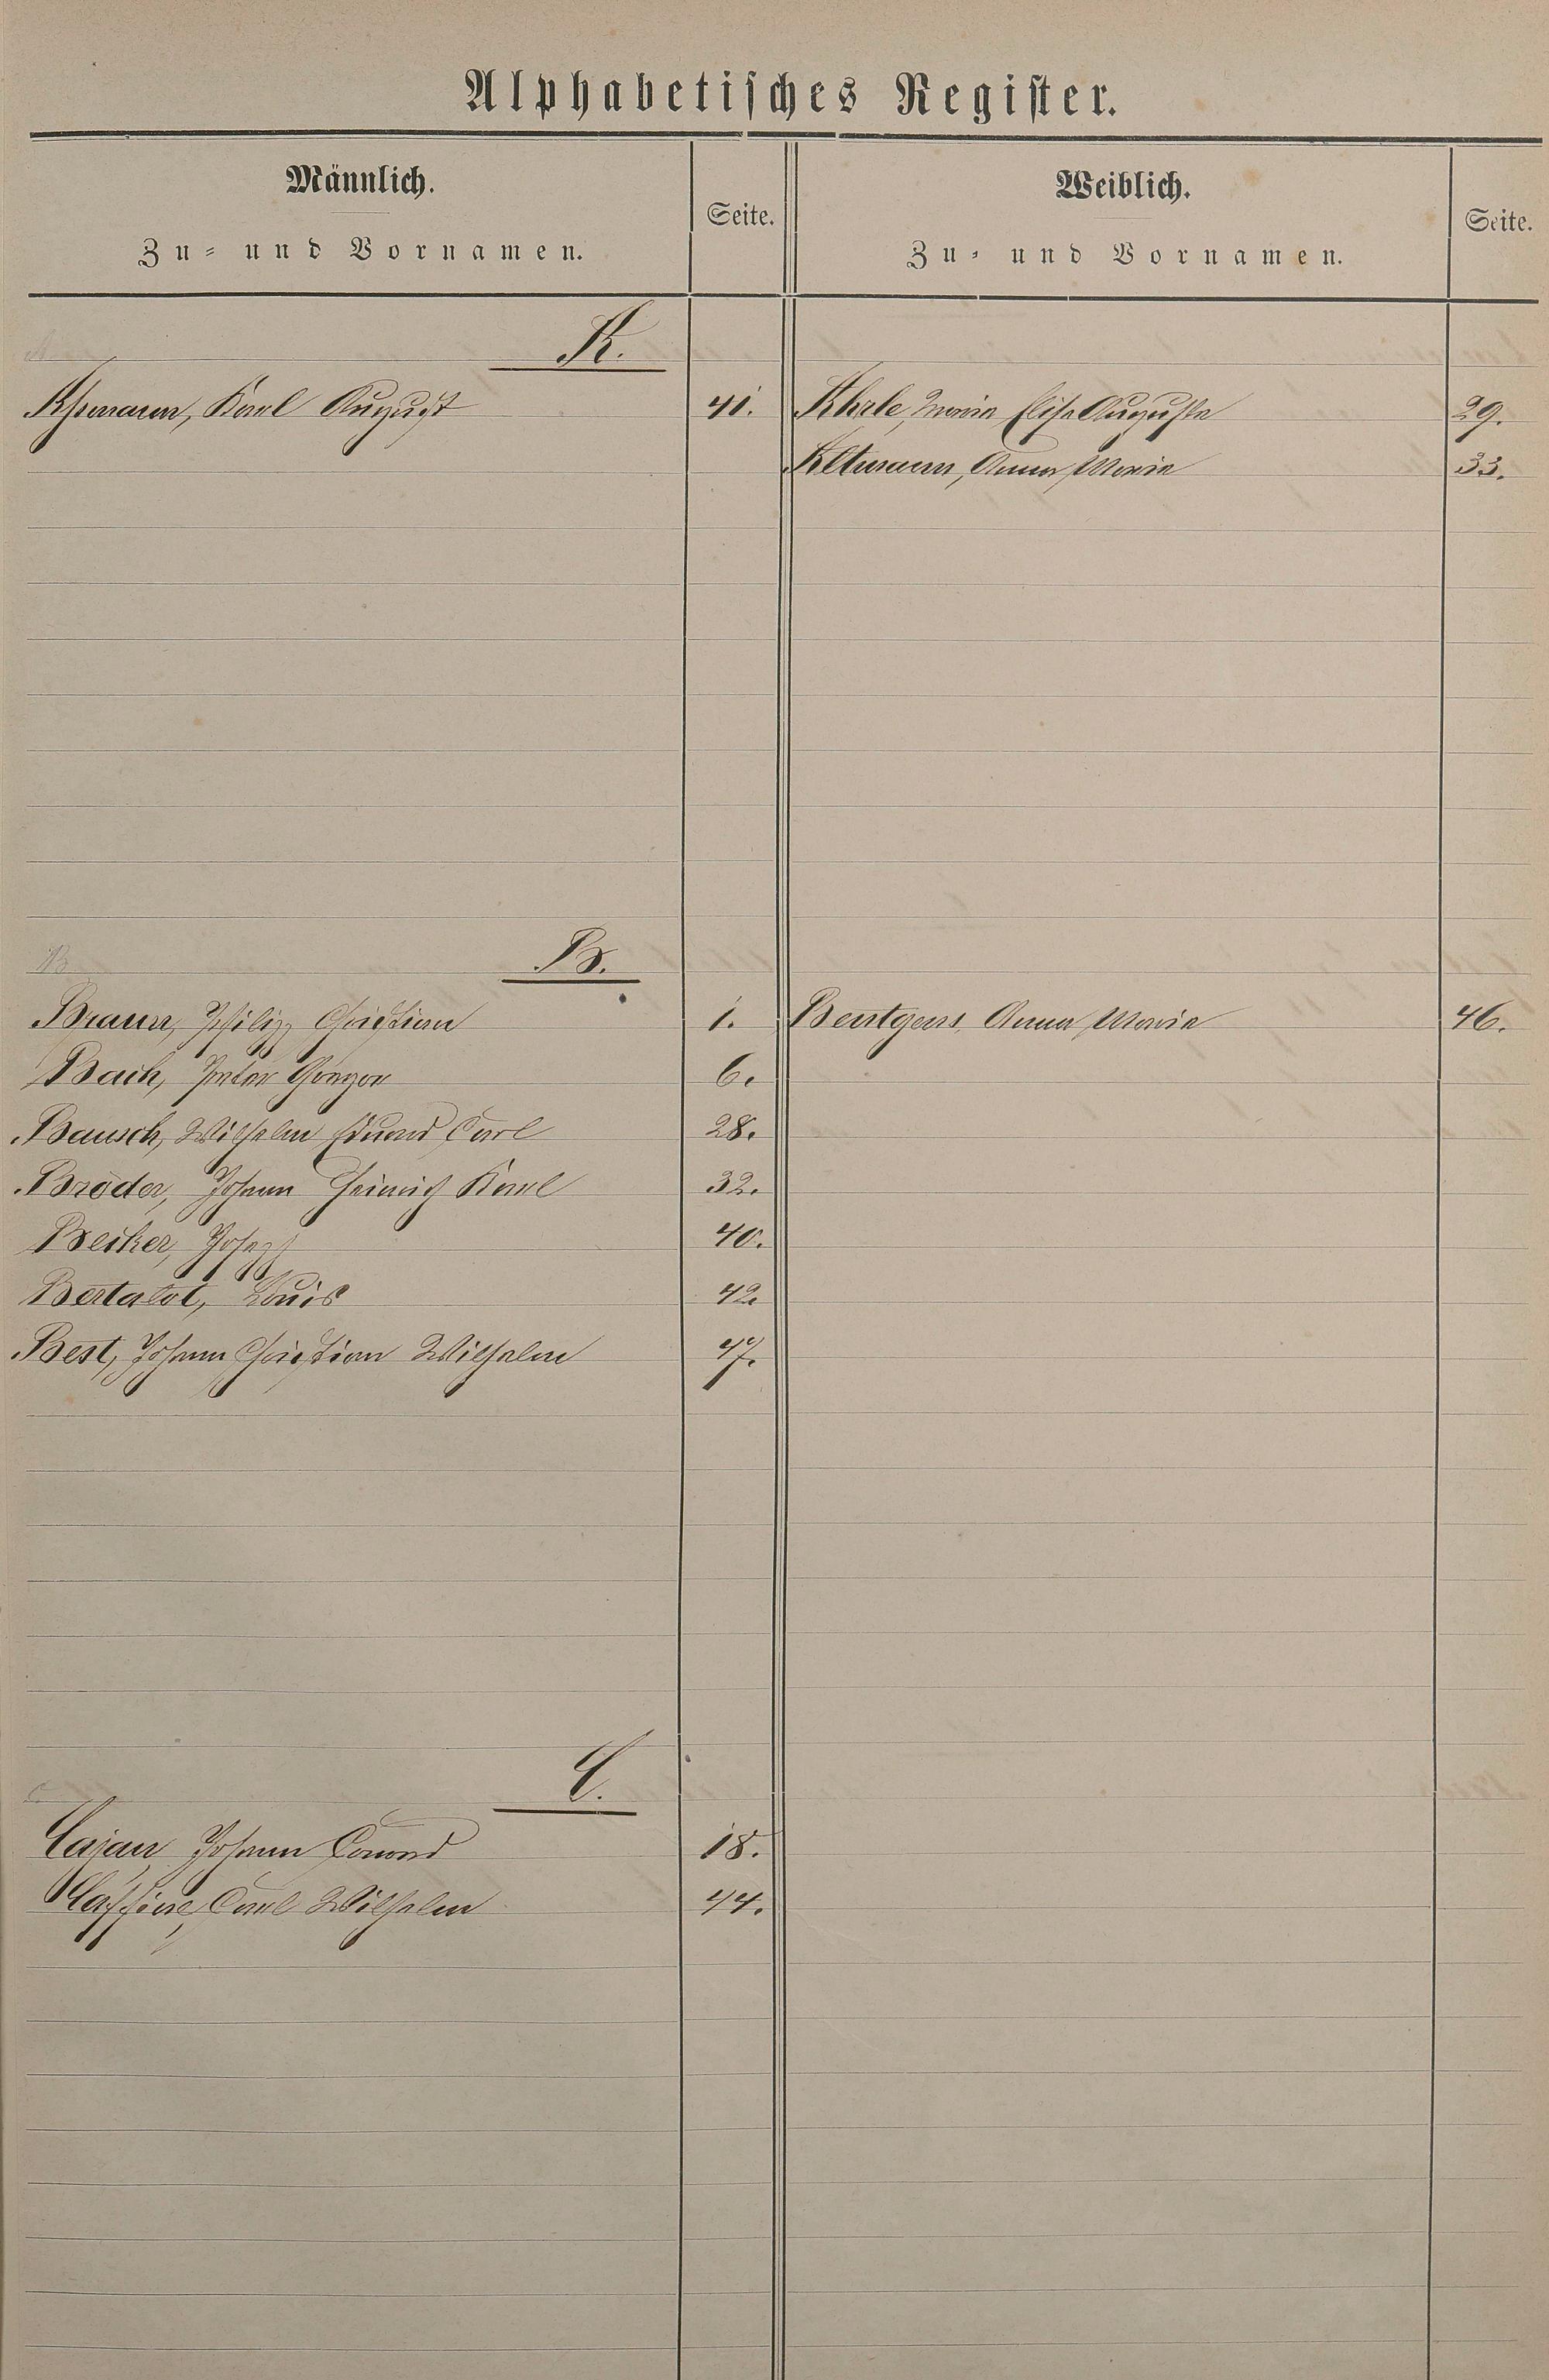 Alphabetisches Register.
Männlich.
Zu- und Vornamen.
Seite.
Weiblich.
Zu- und Vornamen.
Seite.
A.
A
Karl August 41.
Ahrle, Maria Elise Auguste 29.
Altmann, Anna Maria 33.
B.
B
Braun, Philipp Christian 1.
Bentgens, Anna Maria 46.
Bach, Peter Gregor 6.
Bausch, Wilhelm Eduard Carl 28.
Bröder, Johann Heinrich Karl 32.
Becker, Joseph 40.
Bertalot, Louis 42.
Best, Johann Christian Wilhelm 47.
C.
C
Cajan, Johann Conrad 18.
Carl Wilhelm 44.